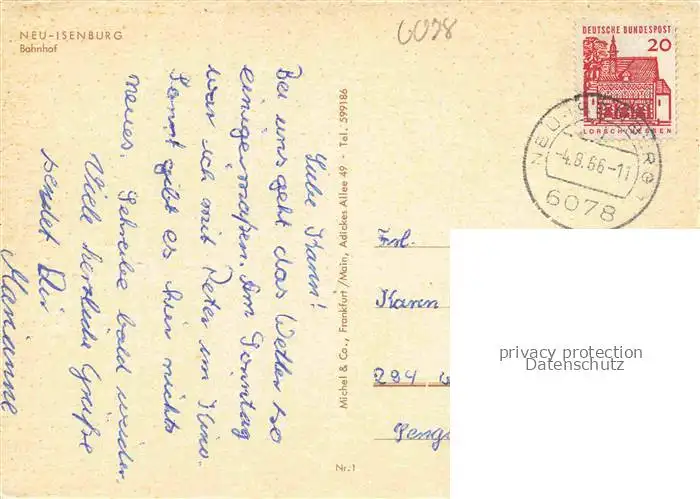 NEU-ISENBURG
Bahnhof
6078
DEUTSCHE BUNDESPOST
20
LORSCH/HESSEN
NEU-ISENBURG 1
-4.8.66-11
6078
Liebe Karin!
Bei uns geht das Wetter so
einigermaßen. Am Sonntag
war ich mit Peter im Kino.
Sonst gibt es hier nichts
neues. Schreibe bald wieder.
Viele herzliche Grüße
sendet Dir
Marianne
Michel & Co., Frankfurt/Main, Adickes Allee 49 - Tel. 599186
Nr. 1
Frl.
Karen
294
Seng
privacy protection
Datenschutz